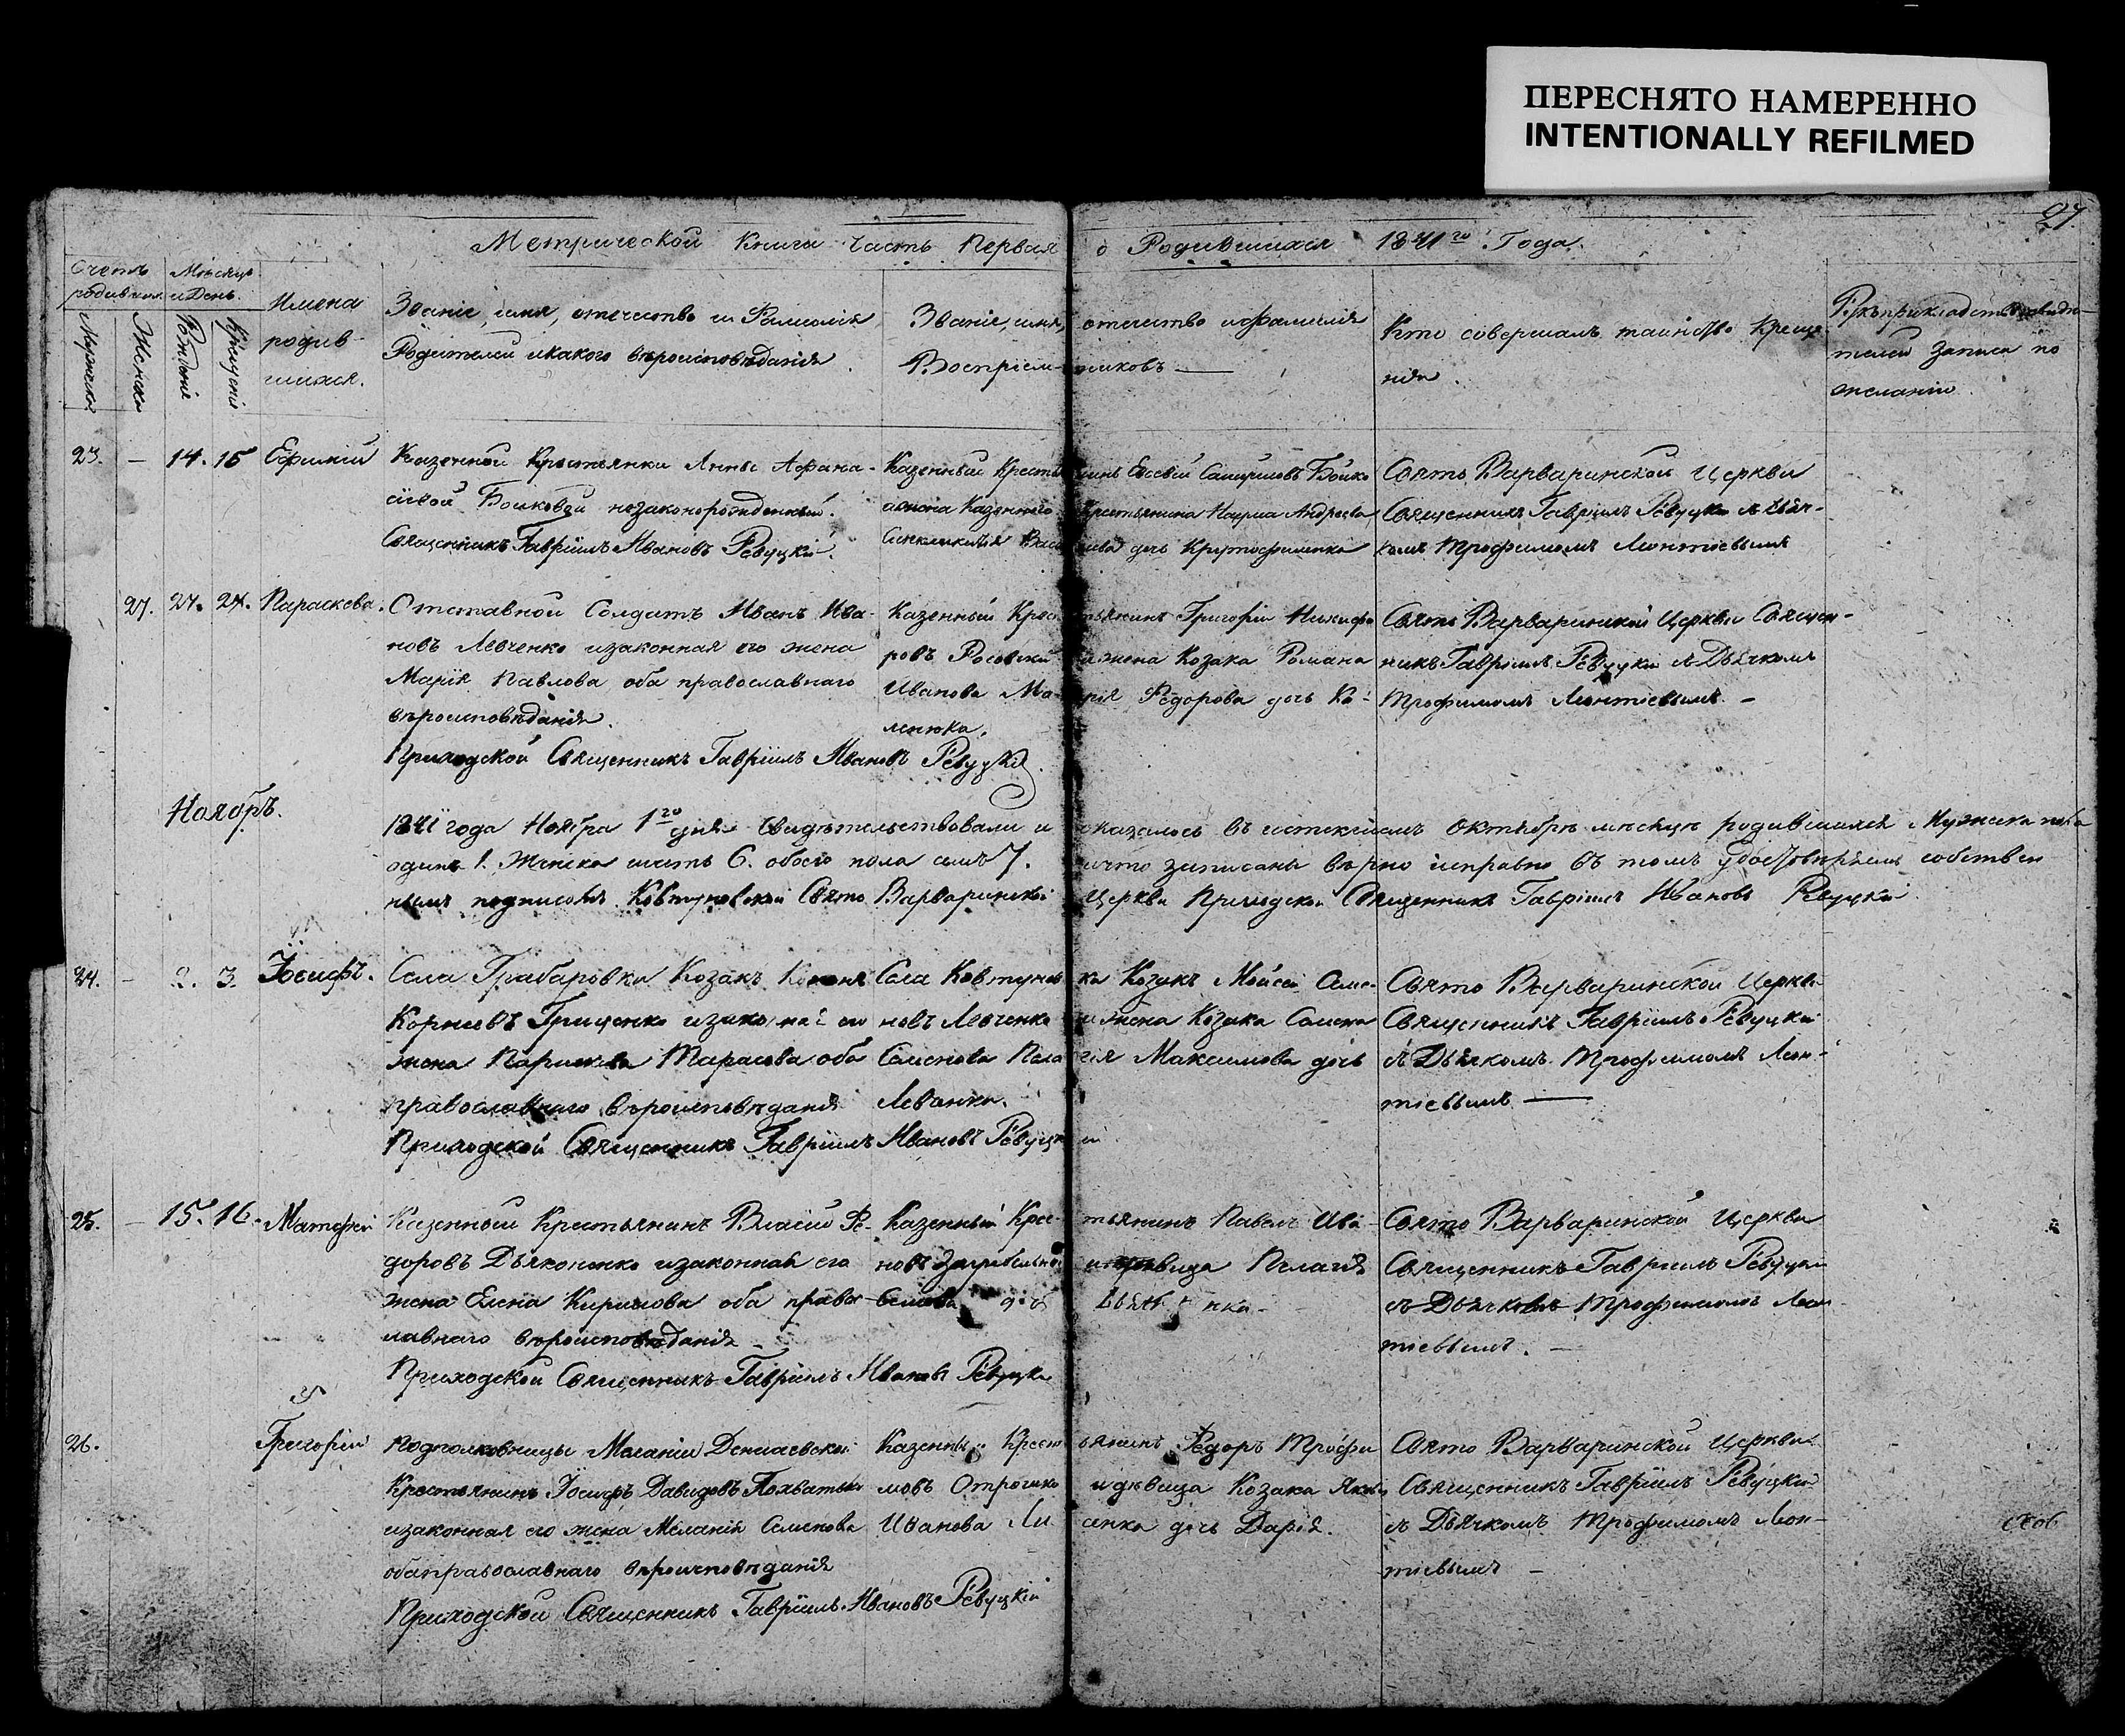 ПЕРЕСНЯТО НАМЕРЕННО
INTENTIONALLY REFILMED
27.
Метрической Книги Часть Первая о Родившихся 1841го Года.
Счетъ родившихся
Мѣсяцъ и День.
Мужеска
Женска
Рожденія
Крещенія
Имена
родив-
шихся.
Званіе, имя, отечество и Фамилія
Родителей и какого вѣроисповѣданія
Званіе, имя, отечество и фамилія
Воспріем-никовъ
Кто совершалъ таинство Креще-
нія.
записи по
желанію
23. — 14. 15 Ефимій
Казенной Крестьянки Анны Афана-
сіевой Бойковой незаконорожденный.
Священникъ Гавріилъ Ивановъ Ревуцкій.
Казенный Крестьянинъ Евсевій Бойко
Казенного Крестьянина Наума Андреева
дочь
Свято Варваринской Церкви
Священникъ Гавріилъ Ревуцкій съ Дьяч-
комъ Трофимомъ Леонтіевымъ
27. 27. 27. Параскева.
Отставной Солдатъ Иванъ Ива-
новъ Левченко и законная его жена
Марія Павлова оба православнаго
вѣроисповѣданія.
Приходской Священникъ Гавріилъ Ивановъ Ревуцкій
Казенный Крестьянинъ Григорій Никифо
ровъ Росовскій и жена Козака Романа
Иванова Марія Федорова дочь Ка-
ленюка.
Свято Варваринской Церкви Священ-
никъ Гавріилъ Ревуцкій съ Дьячкомъ
Трофимомъ Леонтіевымъ —
Ноябрь.
1841 года Ноября 1го дня свидѣтельствовали и оказалось въ истекшемъ Октябрѣ мѣсяцѣ родившихся Мужеска пола
одинъ 1. Женска шесть 6. обоего пола семь 7. и что записаны вѣрно и исправно въ томъ удостовѣряемъ собствен
нымъ подписомъ Ковтуновской Свято Варваринской Церкви Приходской Священникъ Гавріилъ Ивановъ Ревуцкій
24. — 2. 3. Іосифъ.
Села Грабаровки Козакъ
Корнеевъ Грищенко и законная его
жена Параскева Тарасова оба
православнаго вѣроисповѣданія
Приходской Священникъ Гавріилъ Ивановъ Ревуцкій
Села Ковтуновки Козакъ Мойсей Семе-
новъ Левченко и жена Козака Семена
Семенова Пелагія Максимова дочь
Левченка.
Свято Варваринской Церкви
Священникъ Гавріилъ Ревуцкій
съ Дьячкомъ Трофимомъ Леон-
тіевымъ —
25. — 15. 16. Матфей
Казенный Крестьянинъ Власій Фе-
доровъ Дьяконенко и законная его
жена Елена Кирилова оба правос-
лавнаго вѣроисповѣданія
Приходской Священникъ Гавріилъ Ивановъ Ревуцкій
Казенный Крестьянинъ Павелъ Ива-
новъ и дѣвица Пелагія
Свято Варваринской Церкви
Священникъ Гавріилъ Ревуцкій
съ Дьячкомъ Трофимомъ Леон-
тіевымъ. —
26. Григорій
Подполковницы Меланіи
Крестьянинъ Іосифъ Давидовъ
и законная его жена Меланія Семенова
оба православнаго вѣроисповѣданія
Приходской Священникъ Гавріилъ Ивановъ Ревуцкій
Казенный Крестьянинъ Федоръ Трофи
мовъ и дѣвица Козака Якова
Иванова дочь Дарія.
Свято Варваринской Церкви
Священникъ Гавріилъ Ревуцкій
съ Дьячкомъ Трофимомъ Леон-
тіевымъ —